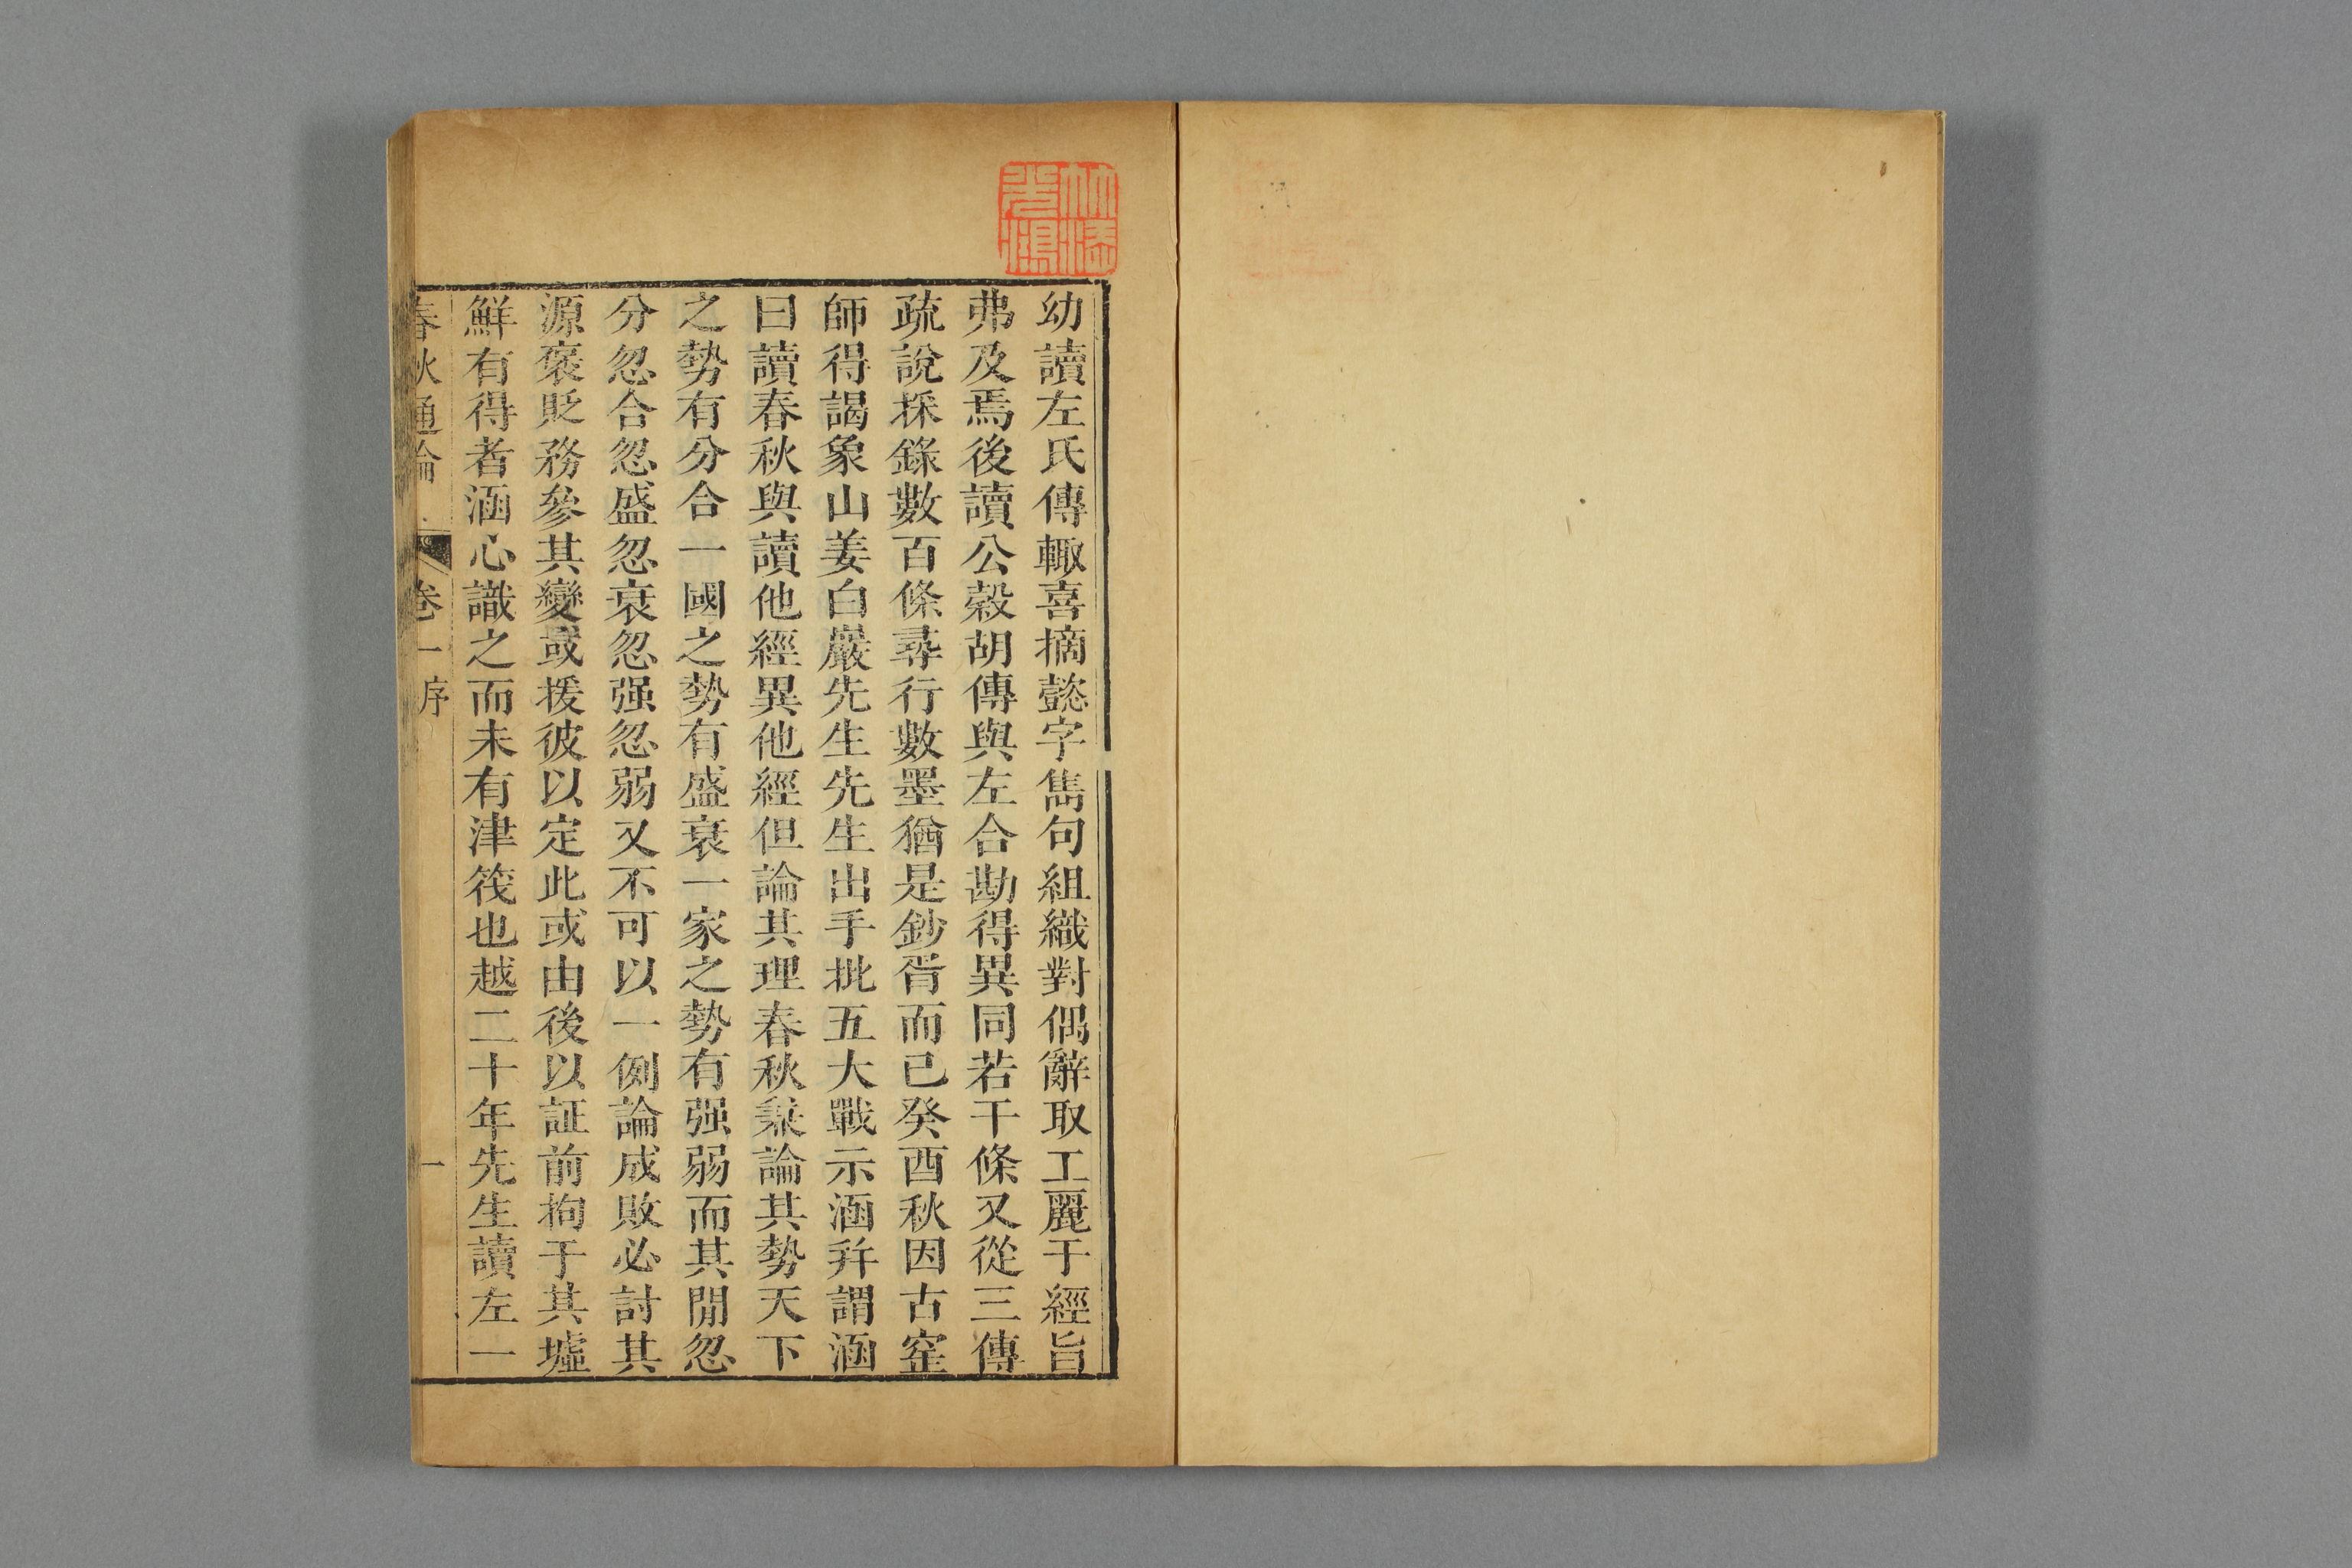 幼讀左氏傳輙喜摘懿字雋句組織對偶辭取工麗于經旨
弗及焉後讀公穀胡傳與左合勘得異同若干條又從三傳
疏說採錄數百條尋行數墨猶是鈔胥而已癸酉秋因古窐
師得謁象山姜白巖先生先生出手批五大戰示涵幷謂涵
曰讀春秋與讀他經異他經但論其理春秋兼論其勢天下
之勢有分合一國之勢有盛衰一家之勢有强弱而其閒忽
分忽合忽盛忽衰忽强忽弱又不可以一例論成敗必討其
源褒貶務參其變或援彼以定此或由後以証前拘于其墟
鮮有得者涵心識之而未有津筏也越二十年先生讀左一
春秋通論 卷一序 一